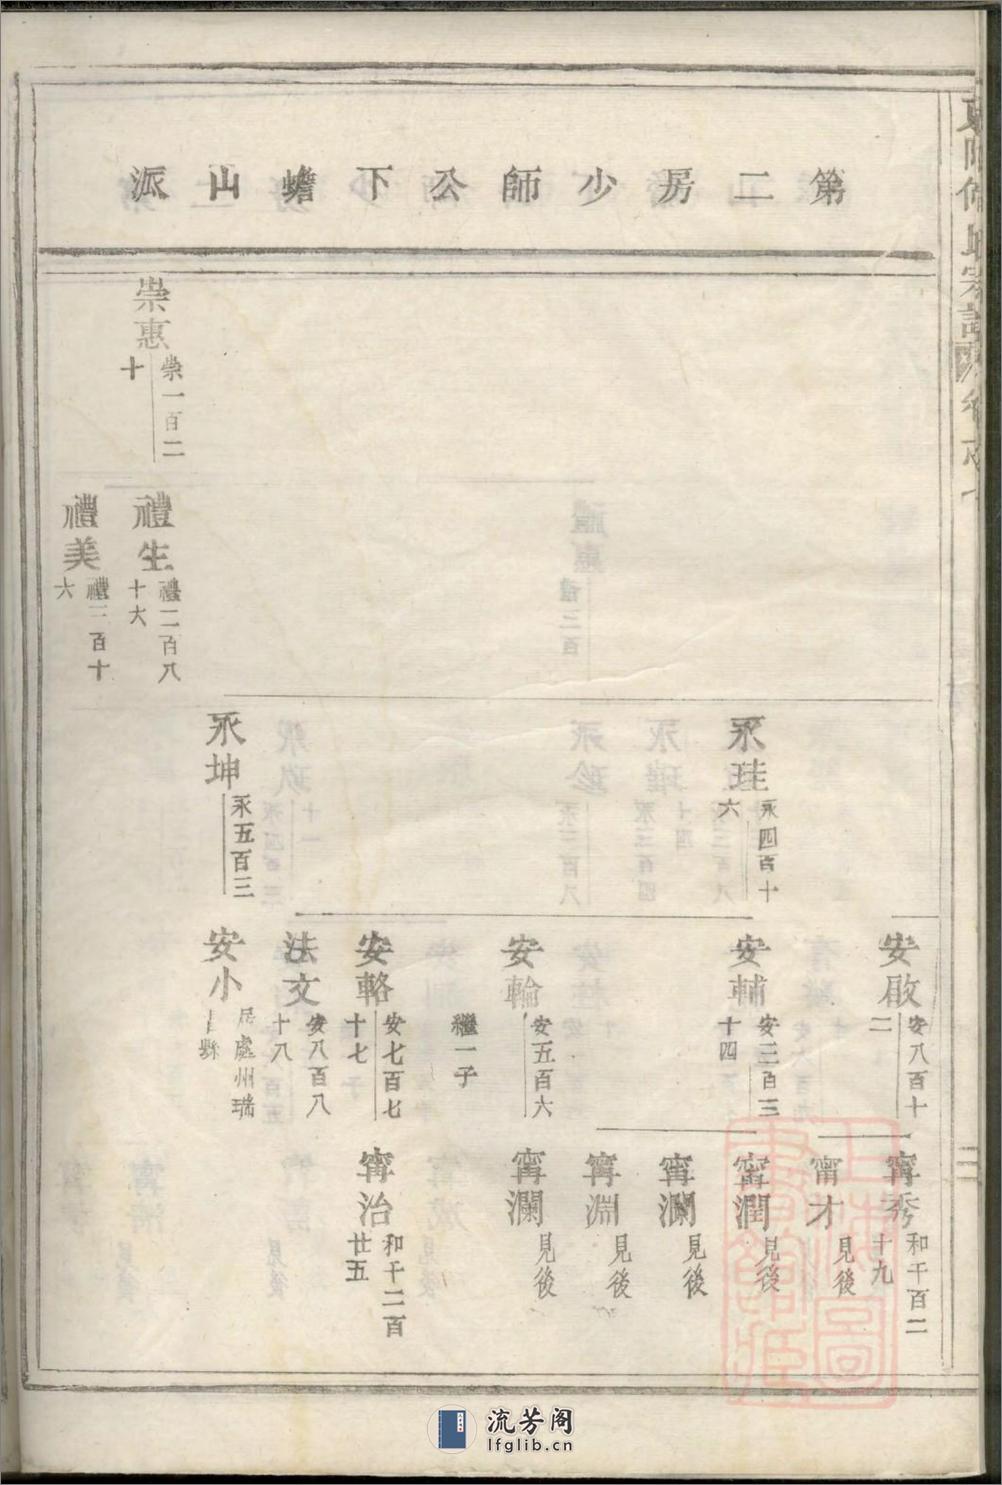 第二房少師公下蟾山派
崇惠
崇一百二
十
禮生
禮二百八
十六
禮美
禮三百十
六
永珪
永四百十
六
永坤
永五百三
安啟
安八百十
二
安輔
安三百三
十四
安輪
安五百六
繼一子
安輅
安七百七
十七
法文
安八百八
十八
安小
居處州瑞
甯秀
和千百二
十九
甯才
見後
甯潤
見後
甯瀾
見後
甯淵
見後
甯瀾
見後
甯治
和千二百
廿五
流芳阁
lfglib.cn